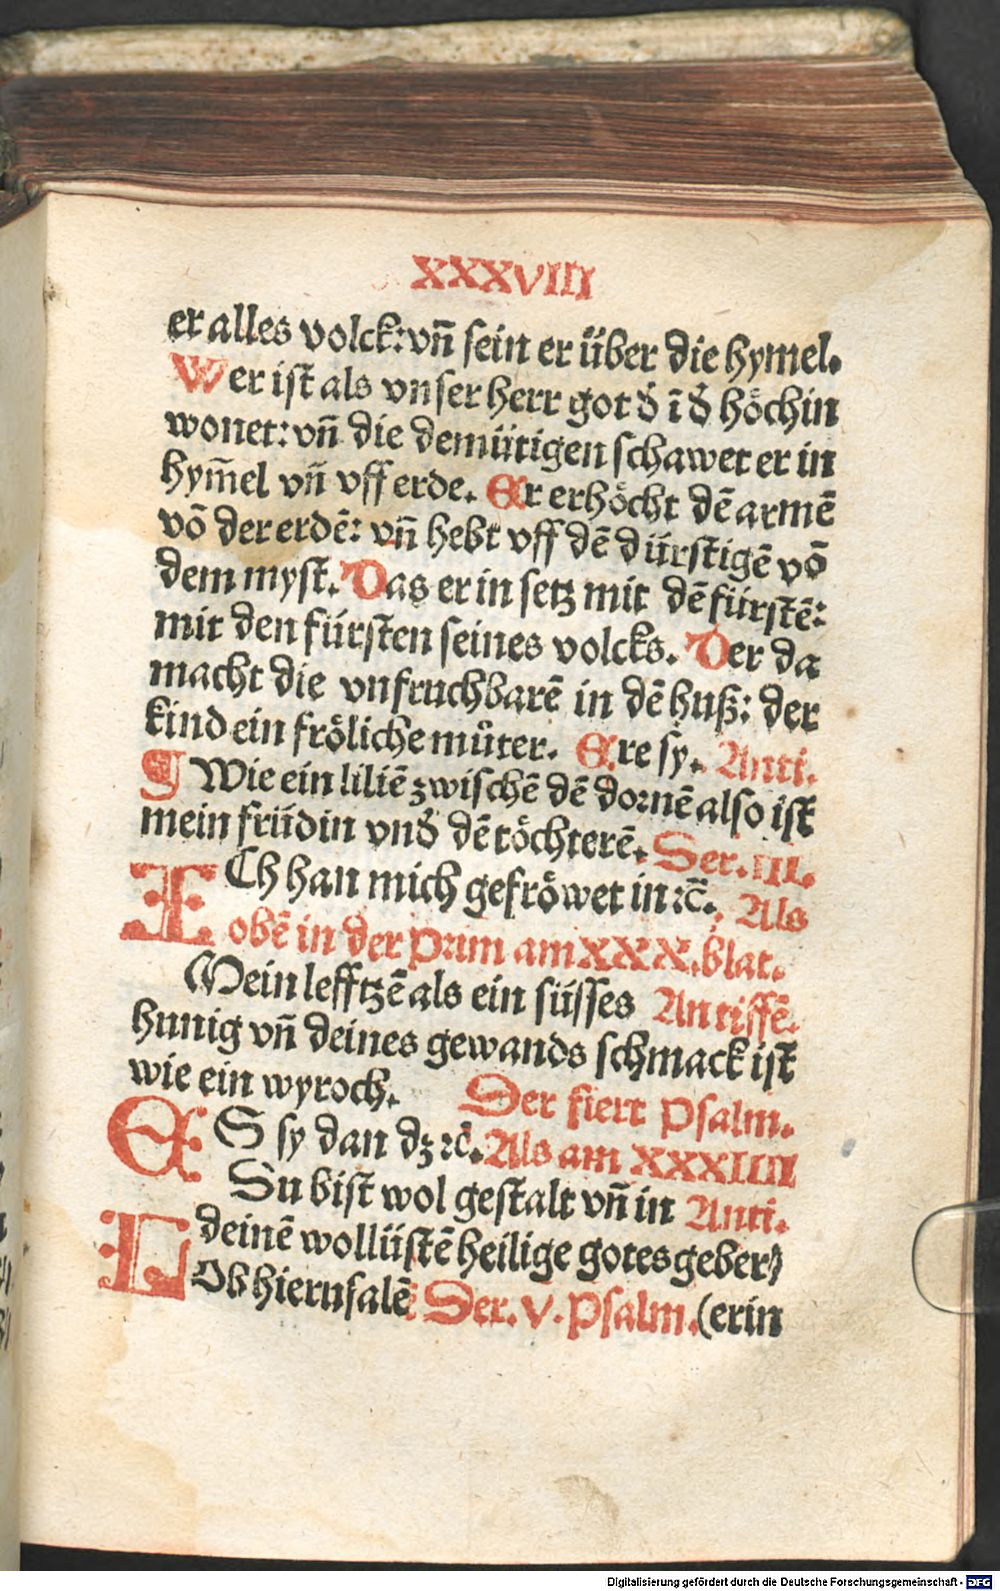 XXXVIII
er alles volck: vñ sein er über die hymel.
Wer ist als vnser herr got d̕ ī d̕ höchin
wonet: vñ die demütigen schawet er in
hym̄el vñ vff erde. Er erhöcht dē armē
vō der erdē: vñ hebt vff dē dürstigē vō
dem myst. Das er in setz mit dē fürstē:
mit den fürsten seines volcks. Der da
macht die vnfruchbarē in dē huß: der
kind ein fröliche můter. Ere sy. Anti.
¶ Wie ein liliē zwischē dē dornē also ist
mein fründin vnd̕ dē töchterē. Der. III.
ICh han mich gefröwet in ꝛc̄. Als
obē in der prim am XXX. blat.
Mein lefftzē als ein süsses Antiffē.
hunig vñ deines gewands schmack ist
wie ein wyroch. Der fiert psalm.
ES sy dan dz ꝛc̄. Als am XXXIIII
Du bist wol gestalt vñ in Anti.
deinē wollüstē heilige gotes geber⸗
LOb hierusalē Der. V. psalm. (erin
Digitalisierung gefördert durch die Deutsche Forschungsgemeinschaft - DFG